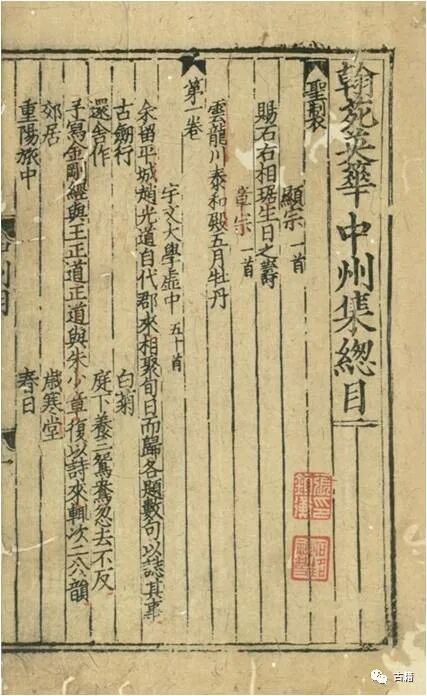 翰苑英華中州集總目
聖製
顯宗 一首
賜石右相琚生日之壽
章宗 一首
雲龍川泰和殿五月牡丹
第一卷
宇文大學虛中 五十首
余留平城趙光道自代郡來相聚旬日而歸各題數句以誌其事
古劒行 白菊
還舍作 庭下養三鴛鴦忽去不反
予寫金剛經與王正道正道與朱少章復以詩來輒次二公韻
郊居 歲寒堂
重陽旅中 春日
古籍